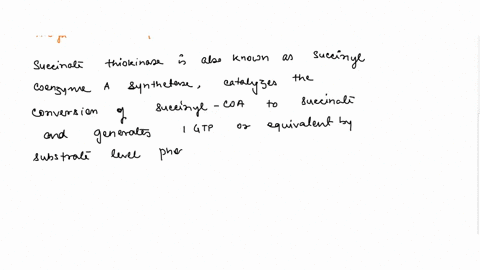 Succinate thiokinase is also known as Succinyl
coenzyme A synthetase, catalyzes the
conversion of succinyl-COA to succinate
and generates 1 GTP or equivalent by
substrate level pho